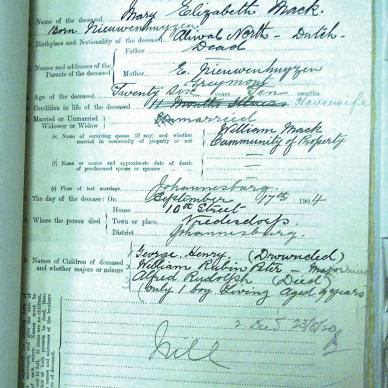 Name of the deceased Mary Elizabeth Mack.
Born Nieuwenhuyzen
Birthplace and Nationality of the deceased Aliwal North - Dutch -
Names and addresses of the Parents of the deceased
Father Dead
Mother E. Nieuwenhuyzen
Greymont
Age of the deceased Twenty Six years Ten months
Condition in life of the deceased 11 Months Illness Housewife
Married or Unmarried
Widower or Widow
married
(a) Name of surviving spouse (if any) and whether married in community of property or not
William Mack
Community of Property
(b) Names and approximate date of death of predeceased spouse or spouses
(c) Place of last marriage. Johannesburg.
The day of the decease: On September 17th 1904
Where the person died
House 10th Street
Town or place. Vrededorp.
District Johannesburg.
Names of Children of deceased and whether majors or minors
George Henry. (Drownded)
William Rubin Peter -
Alfred Rudolph (Died)
(Only 1 boy Living Aged 9 years
Nill